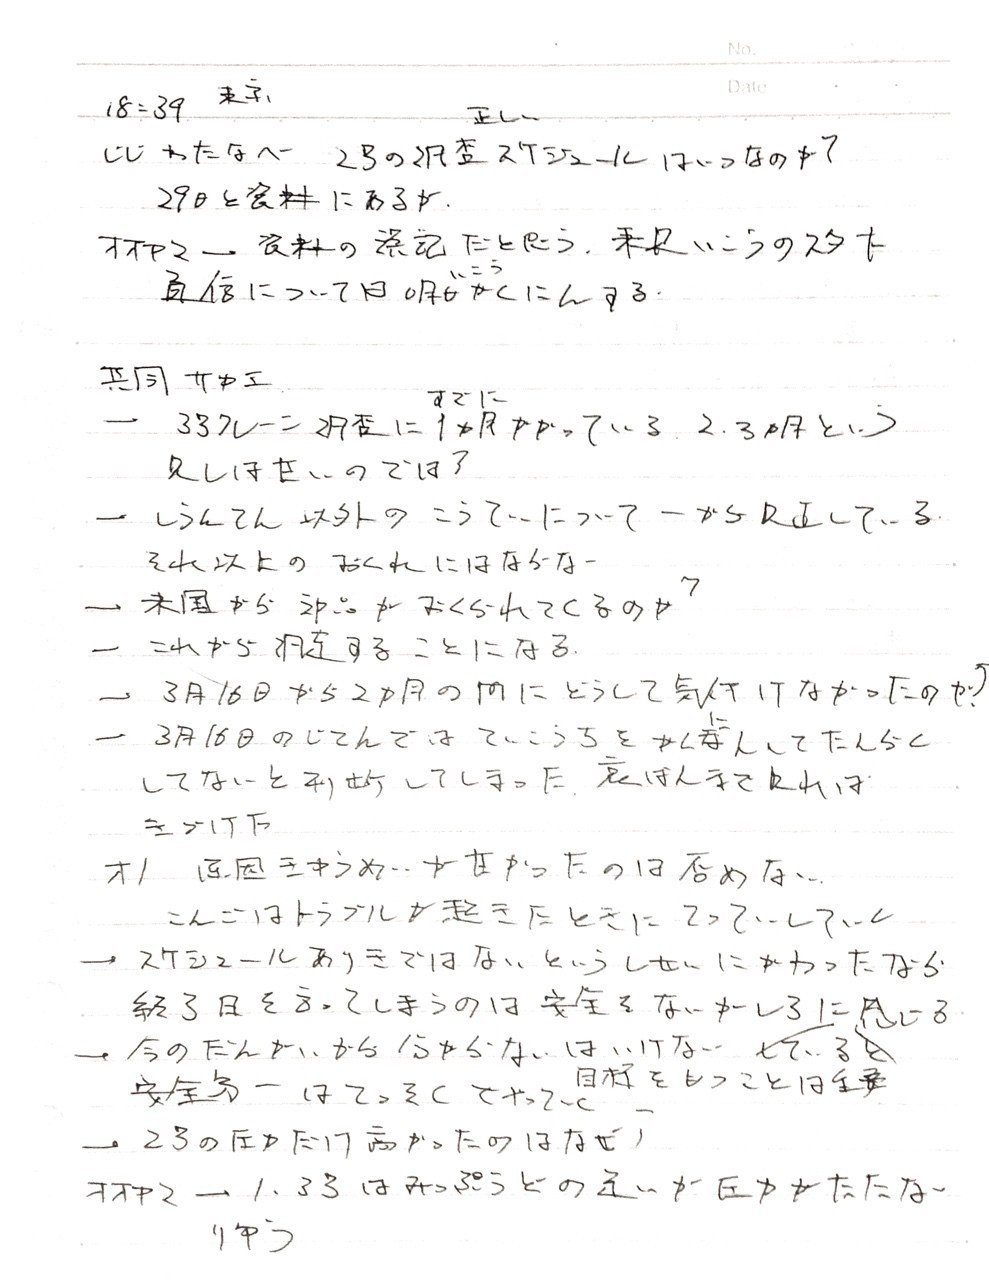 No.
Date
18:39 東京
正しい
じじ わたなべ 2号の調査スケジュールはいつなのか?
29日と資料にあるが.
オオヤマ → 資料の誤記だと思う. 来月いこうのスタート
自信について日 明日いこう かくにんする.
共同 サカエ
すでに
→ 3号クレーン調査に1ヵ月かかっている. 2.3ヵ月という
見しは甘いのでは?
→ しうんてん以外のこうていについて一から見直している.
それ以上のおくれにはならない
→ 米国から部品がおくられてくるのか?
→ これから調達することになる.
→ 3月16日から2ヵ月の間にどうして気付けなかったのか?
→ 3月16日のじてんではていこうちをかくにんしてたんらく
してないと判断してしまった. 裏ばんまで見れば
きづけた
オノ 原因きゅうめいが甘かったのは否めない.
こんごはトラブルが起きたときにてっていしていく
→ スケジュールありきではないというしせいにかわったなら
終了日を言ってしまうのは安全をないがしろに感じる
→ 今のだんかいから分からないはいけない
目標をもつことは重要
安全第一はてっそくでやっていく
→ 2号の圧力だけ高かったのはなぜ?
オオヤマ → 1.3号はみっぷうどの違いが圧力がたたない
りゆう